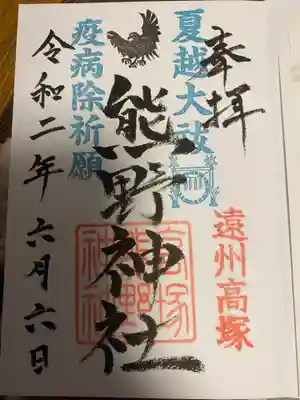 奉拝
夏越大祓
遠州高塚
熊野神社
高塚熊野神社
疫病除祈願
令和二年六月六日